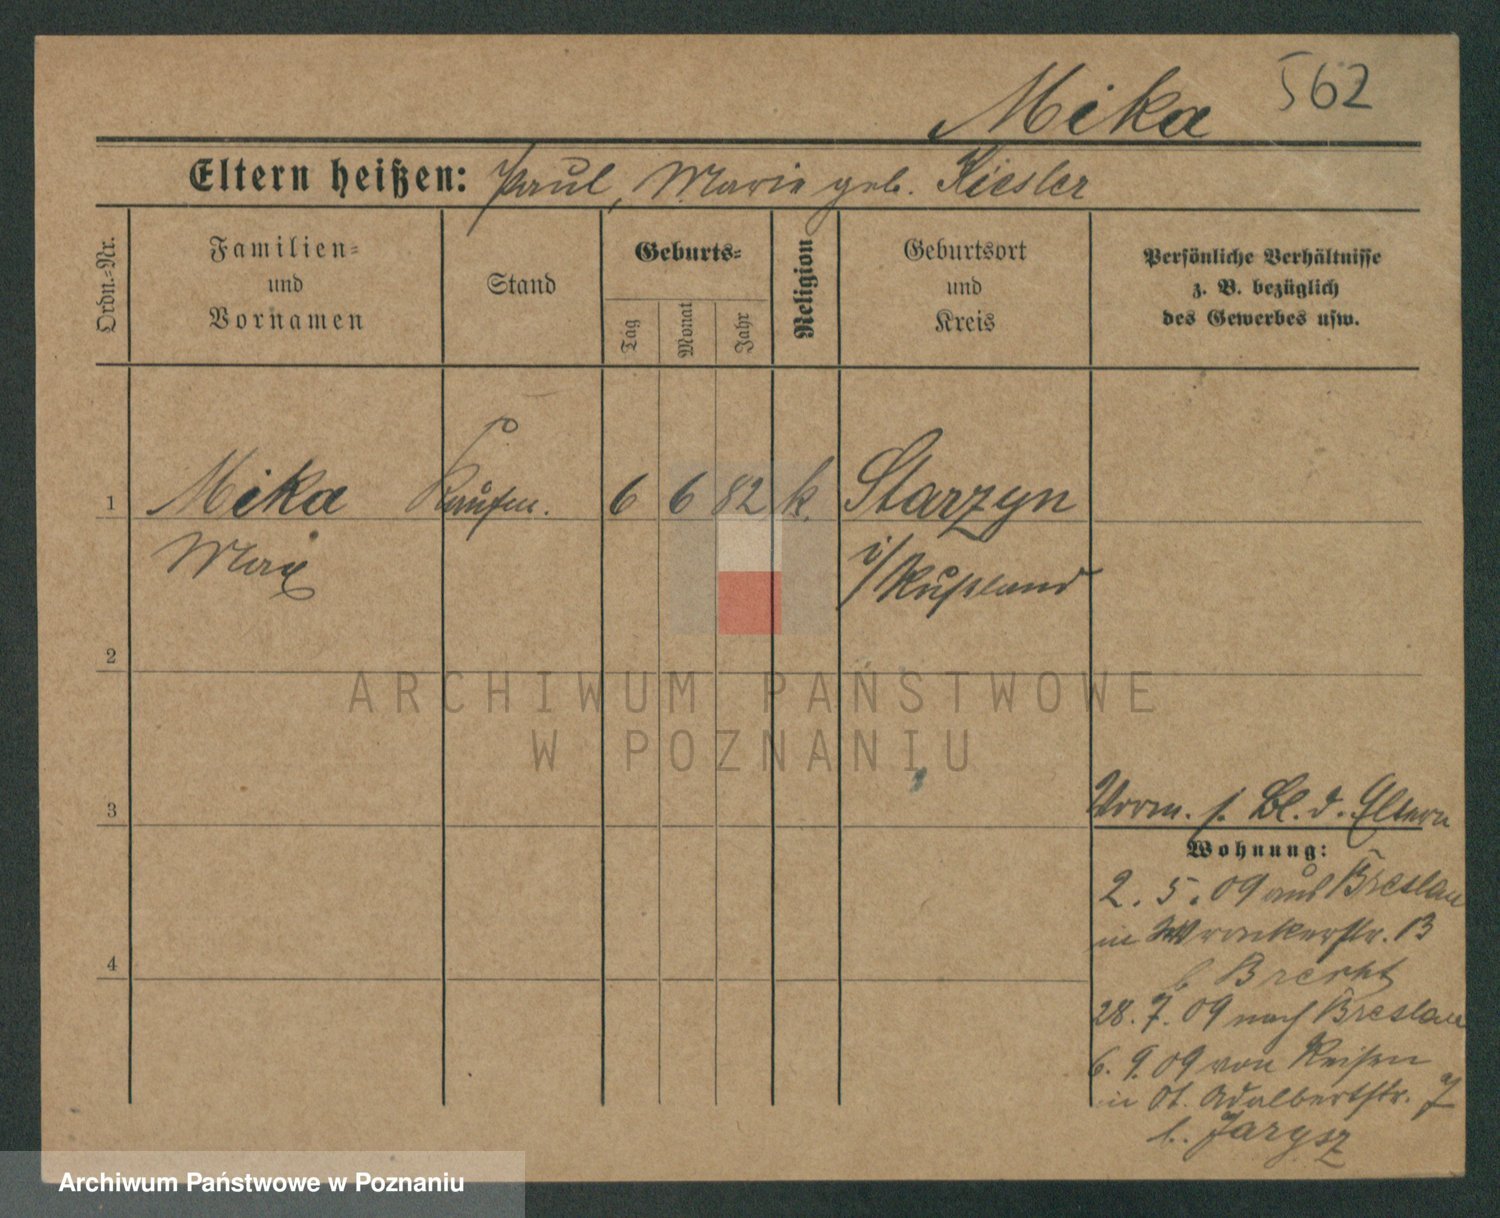 Mika 562
Eltern heißen: Paul, Marie geb. Kiesler
Ordn.-Nr.
Familien-
und
Vornamen
Stand
Geburts-
Tag
Monat
Jahr
Religion
Geburtsort
und
Kreis
Persönliche Verhältnisse
z. B. bezüglich
des Gewerbes usw.
1 Mika Kaufm. 6 6 82 k. Starzyn
Max i/Rußland
2
ARCHIWUM PAŃSTWOWE
W POZNANIU
3
Vorm. s. Bl. d. Eltern
Wohnung:
2. 5. 09 aus Breslau
in Wronkerstr. 13
b Brecht
4
28. 7. 09 nach Breslau
6. 9. 09 von Reisen
in St. Adalbertstr. 7
b. Jarysz
Archiwum Państwowe w Poznaniu